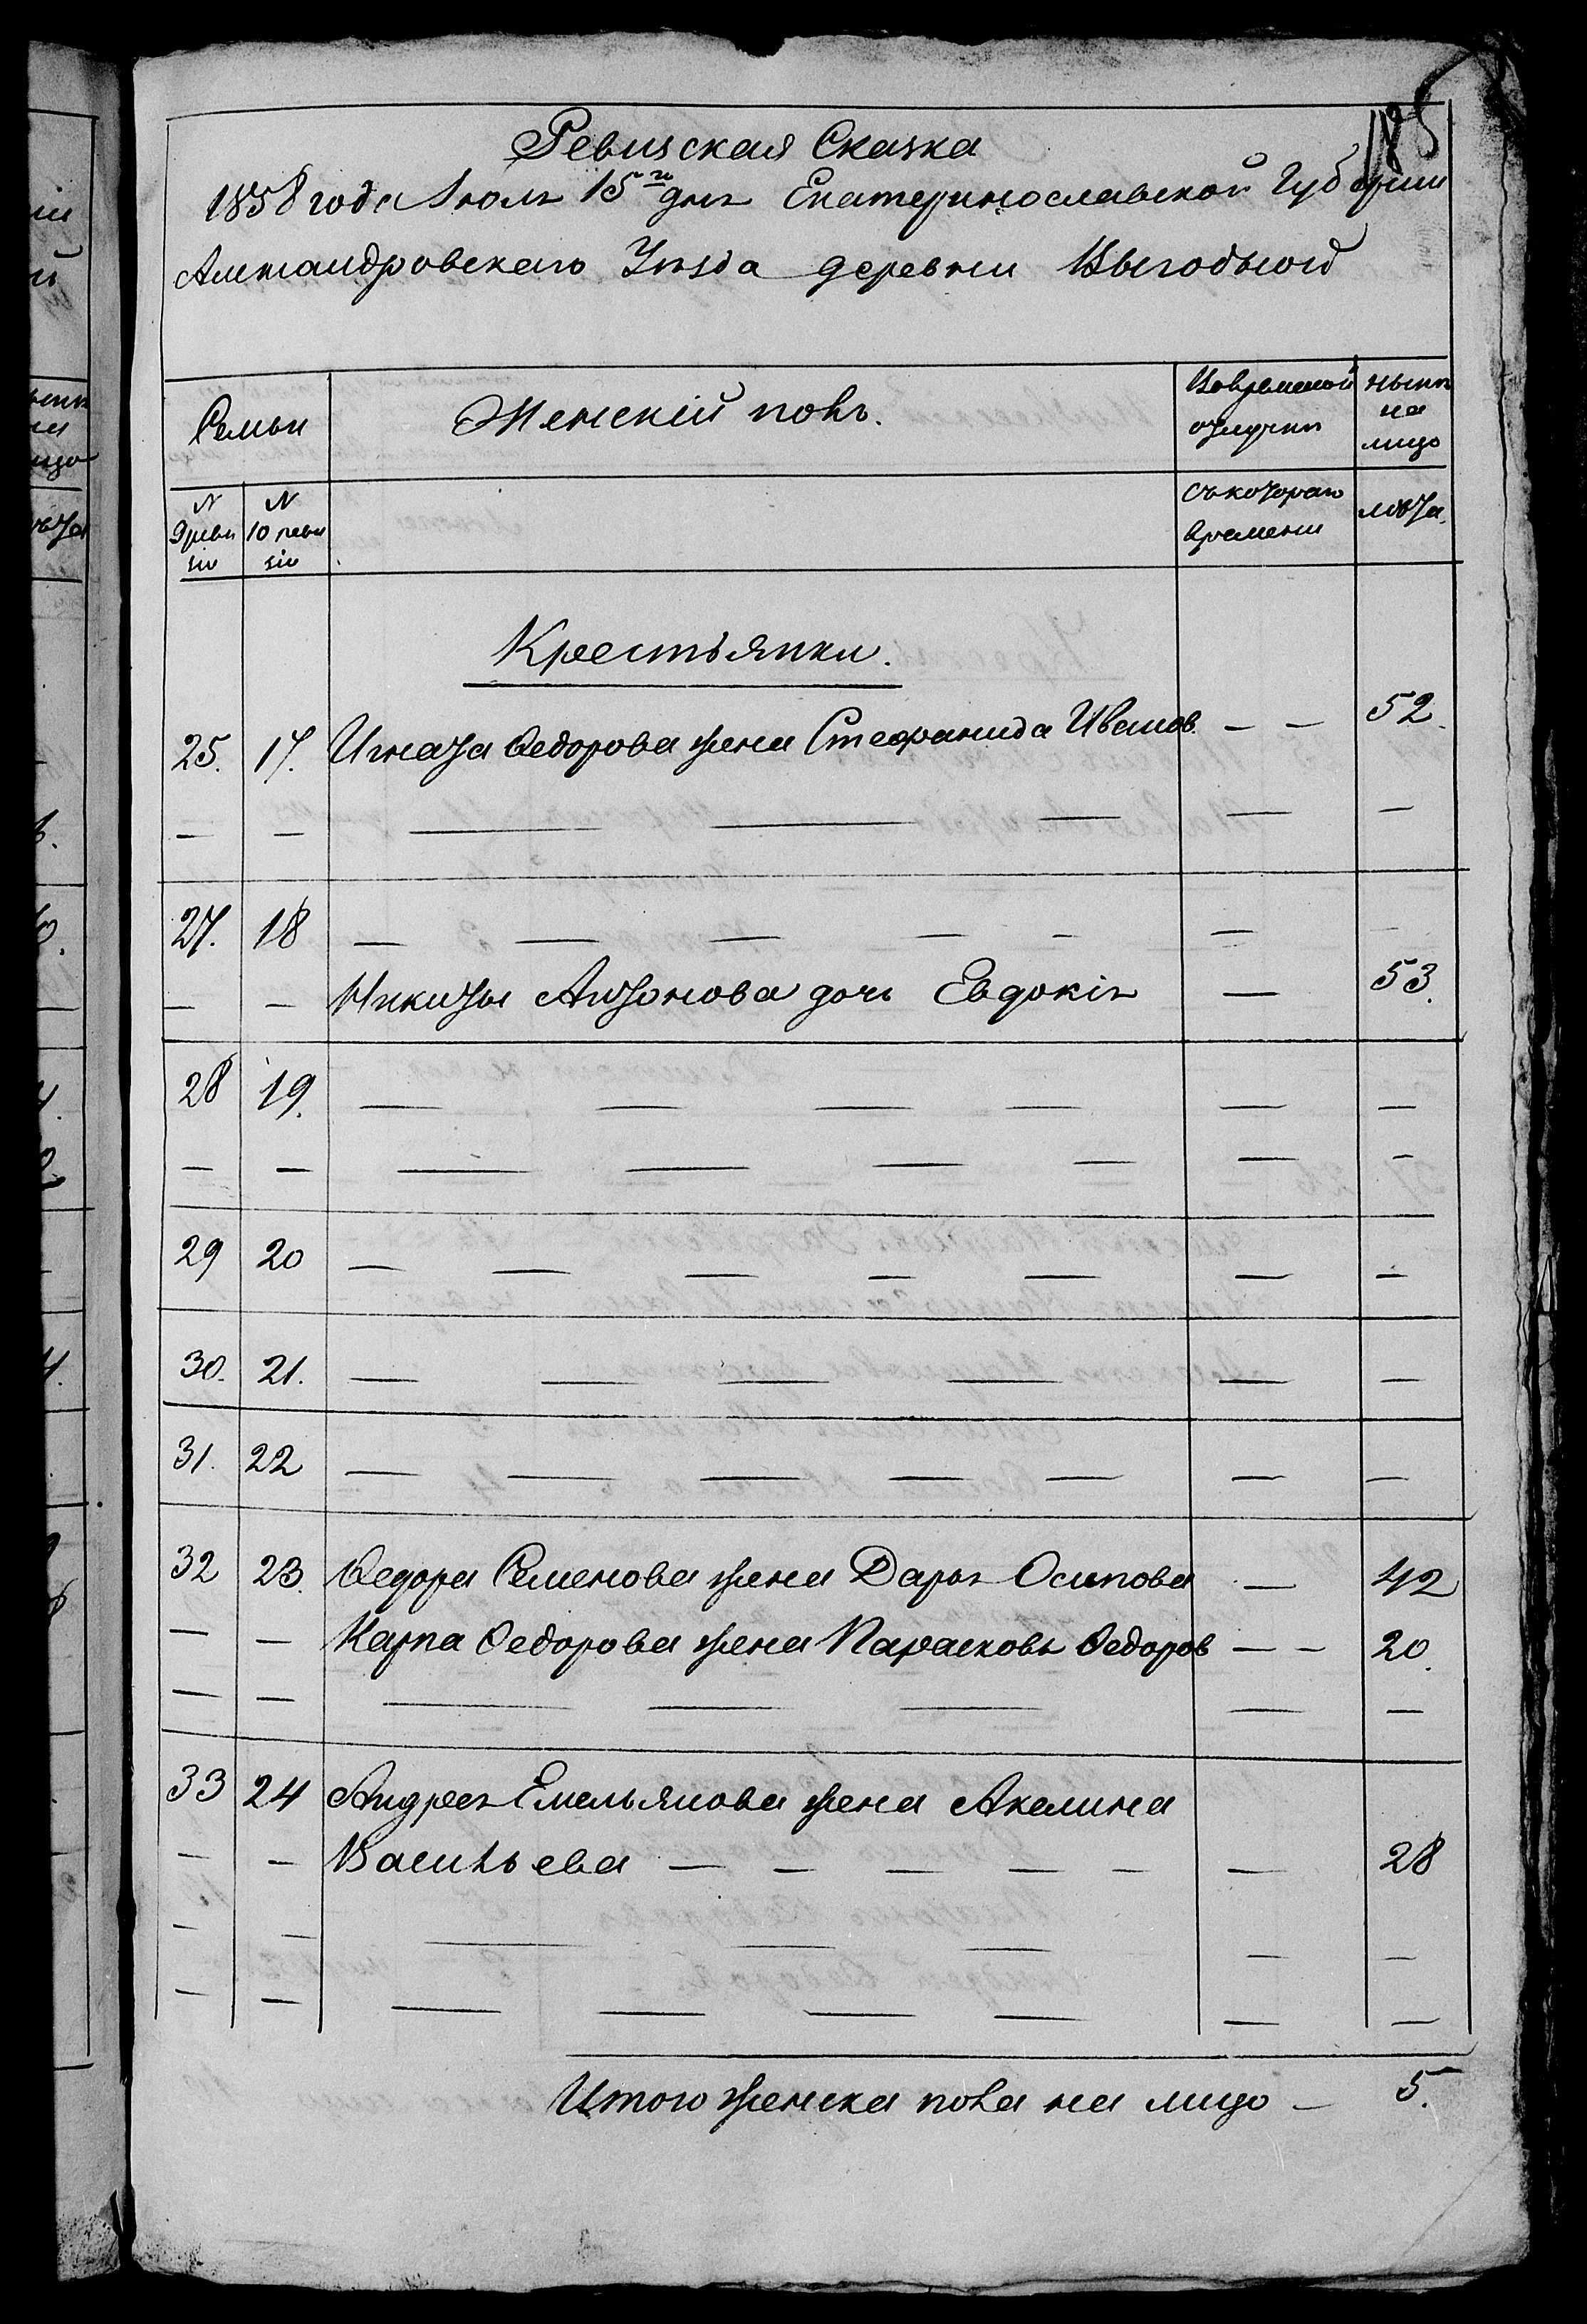 185
Ревизская Сказка
1858 года Июля 15го дня Екатеринославской Губернии
Александровскаго Уѣзда деревни Выгодной
Семьи
Женскій полъ.
Вовременной отлучкѣ
нынѣ на лицо
N 9 ревизіи
N 10 ревизіи
съкотораго времени
лѣта.
Крестьянки.
25. 17. Игната Федорова жена Стефанида Иванов. — — 52.
— — — — — — —
27. 18 — — — — — — —
— — Никиты Антонова дочь Евдокія — 53.
28 19. — — — — — —
— — — — — — — —
29 20 — — — — — — —
30. 21. — — — — — —
31. 22 — — — — — — —
32 23. Федора Семенова жена Дарья Осипова — 42
— — Карпа Федорова жена Парасковья Федоров — — 20.
— — — — — — —
33 24 Андрея Емельянова жена Акелина
— — Васильева — — — — — — 28
— — — — — — —
— — — — — — — —
Итого женска пола на лицо — 5.